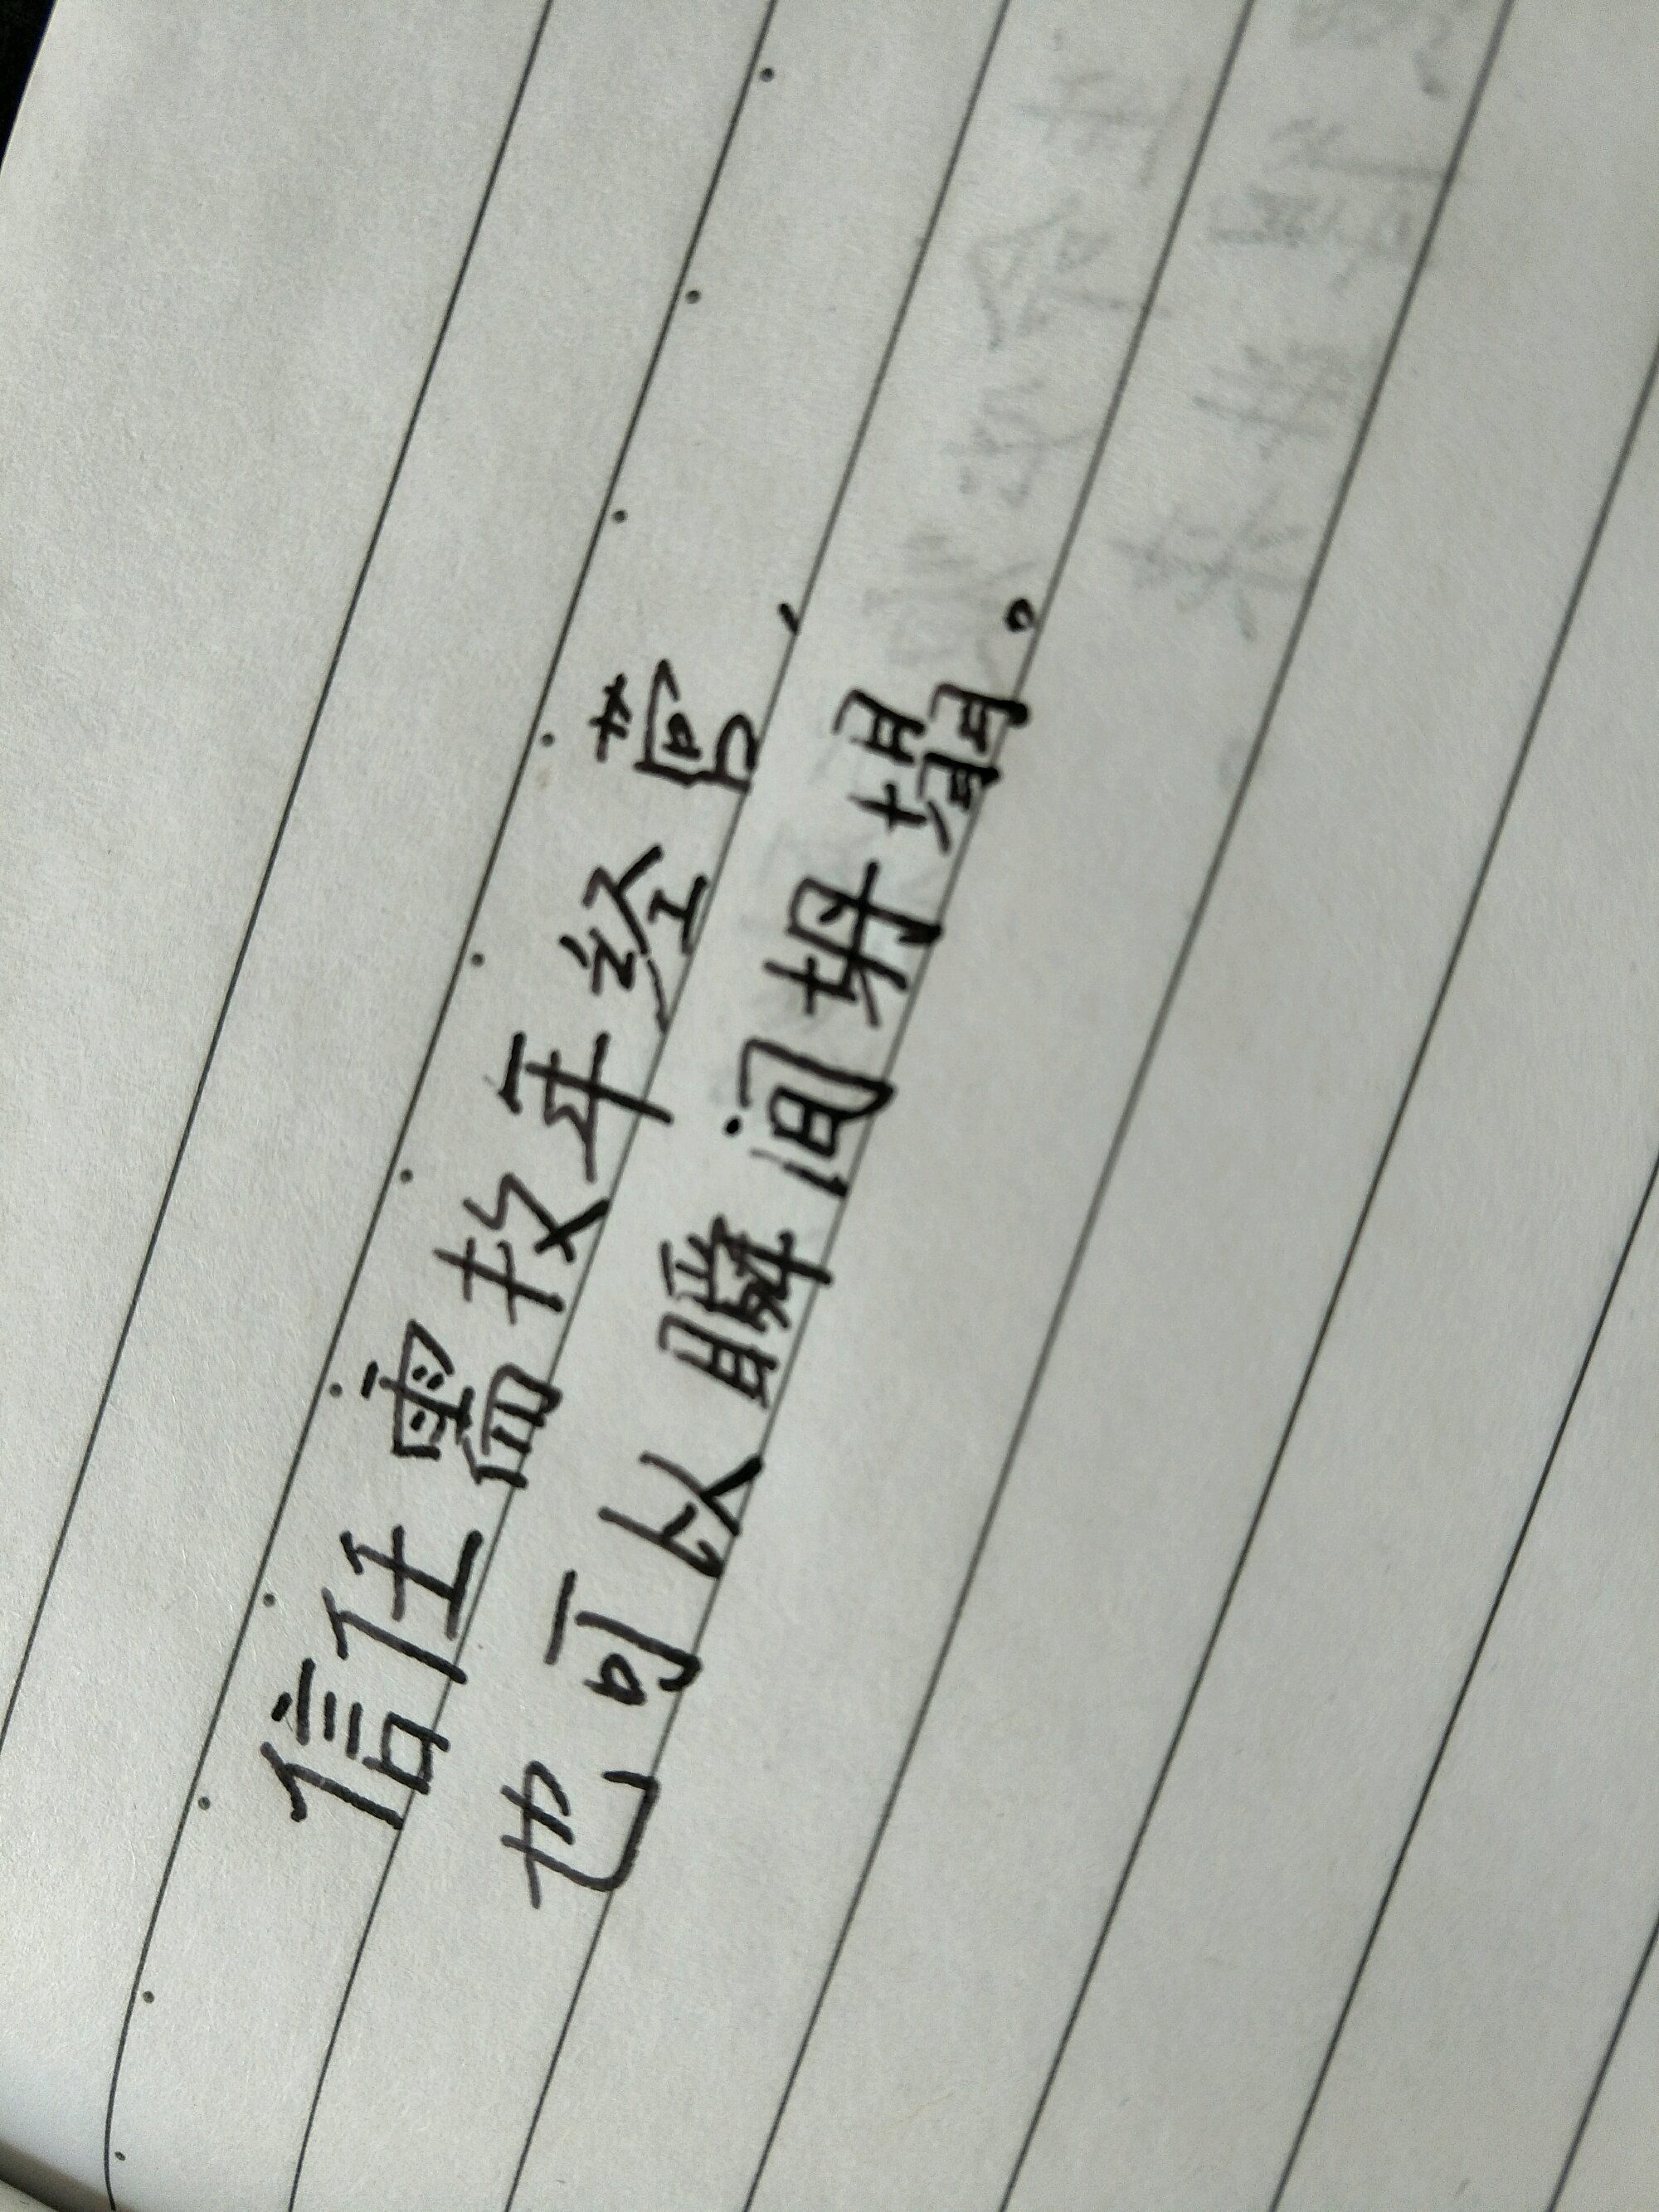 信任需数年经营，
也可以瞬间坍塌。